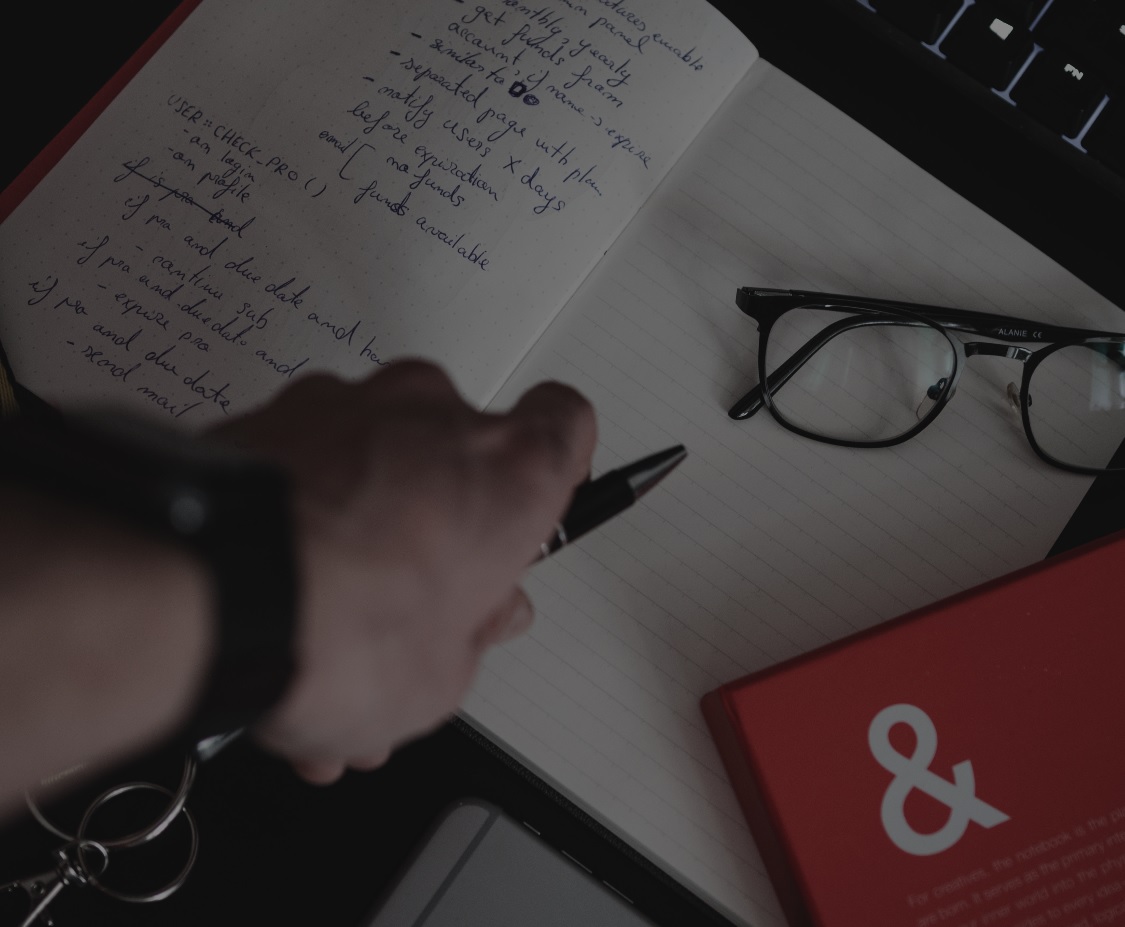 monthly, yearly
- get funds from
account, if name -> expire
- similar to
- separated page with plan
- notify users X days
before expiration
email [ no funds
funds available
USER::CHECK_PRO()
- on login
- on profile
if is pro and
if pro and due date and
- continue sub
if pro and due date and
- expire pro
if pro and due date
- send mail
ALANIE CE
FN
&
For creatives, the notebook is the
are born. It serves as the primary
inner world into the
to every idea